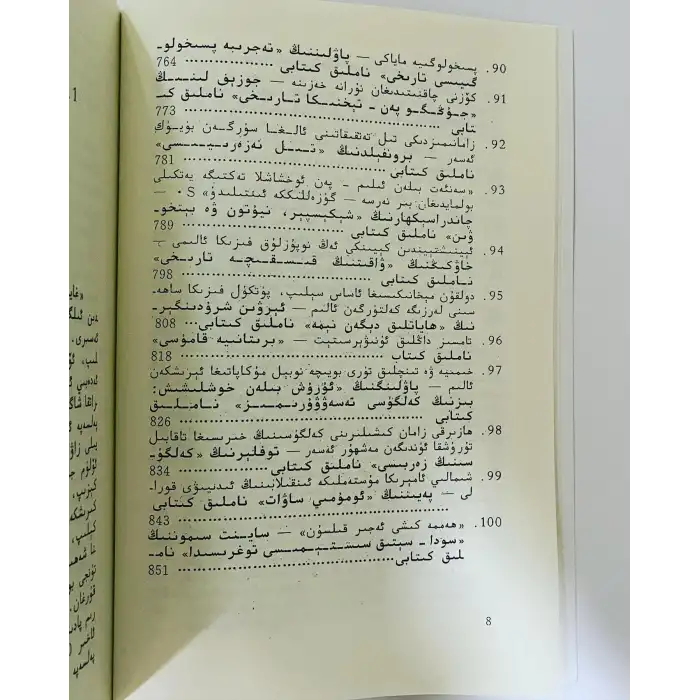 90. پسىخولوگىيە ماياكى — پاۋلىننىڭ «تەجرىبە پسىخولو-
گىيىسى تارىخى» ناملىق كىتابى ........ 764
91. كۆزنى چاقنىتىدىغان نۇرانە خەزىنە — جوزېق لىننىڭ
«جۇڭگو پەن - تېخنىكا تارىخى» ناملىق كى-
تابى ........ 773
92. زامانىمىزدىكى تىل تەتقىقاتىنى ئالغا سۈرگەن بۈيۈك
ئەسەر — برونفېلدنىڭ «تىل نەزەرىيىسى»
ناملىق كىتابى ........ 781
93. «سەنئەت بىلەن ئىلىم - پەن ئوخشاشلا تەكتىگە يەتكىلى
بولمايدىغان بىر نەرسە — گۈزەللىككە ئىنتىلىدۇ» S •
چاندراسېكھارنىڭ «شېكىسپېر، نيۇتون ۋە بېتخو-
ۋىن» ناملىق كىتابى ........ 789
94. ئېينىشتېيندىن كېيىنكى ئەڭ نوپۇزلۇق فىزىكا ئالىمى —
خاۋكىڭنىڭ «ۋاقىتنىڭ قىسقىچە تارىخى»
ناملىق كىتابى ........ 798
95. دولقۇن مېخانىكىسىغا ئاساس سېلىپ، پۈتكۈل فىزىكا ساھە-
سىنى لەرزىگە كەلتۈرگەن ئالىم — ئېرۋىن شرودىنگېر-
نىڭ «ھاياتلىق دېگەن نېمە» ناملىق كىتابى... 808
96. تامسىز داڭلىق ئۇنىۋېرسىتېت — «برىتانىيە قامۇسى»
ناملىق كىتاب ........ 818
97. خىمىيە ۋە تىنچلىق تۈرى بويىچە نوبېل مۇكاپاتىغا ئېرىشكەن
ئالىم — پاۋلىنگنىڭ «ئۇرۇش بىلەن خوشلىشىش:
بىزنىڭ كەلگۈسى تەسەۋۋۇرىمىز» ناملىق
كىتابى ........ 826
98. ھازىرقى زامان كىشىلىرىنى كەلگۈسىنىڭ خىرىسىغا تاقابىل
تۇرۇشقا ئۈندىگەن مەشھۇر ئەسەر — توفلېرنىڭ «كەلگۈ-
سىنىڭ زەربىسى» ناملىق كىتابى ........ 834
99. شىمالىي ئامېرىكا مۇستەملىكە ئىنقىلابىنىڭ ئىدىيىۋى قورا-
لى — پەيىننىڭ «ئومۇمىي ساۋات» ناملىق كىتابى
........ 843
100. «ھەممە كىشى ئەجىر قىلسۇن» — ساينت سىموننىڭ
«سودا - سېتىق سىستېمىسى توغرىسىدا» نام-
لىق كىتابى ........ 851
8